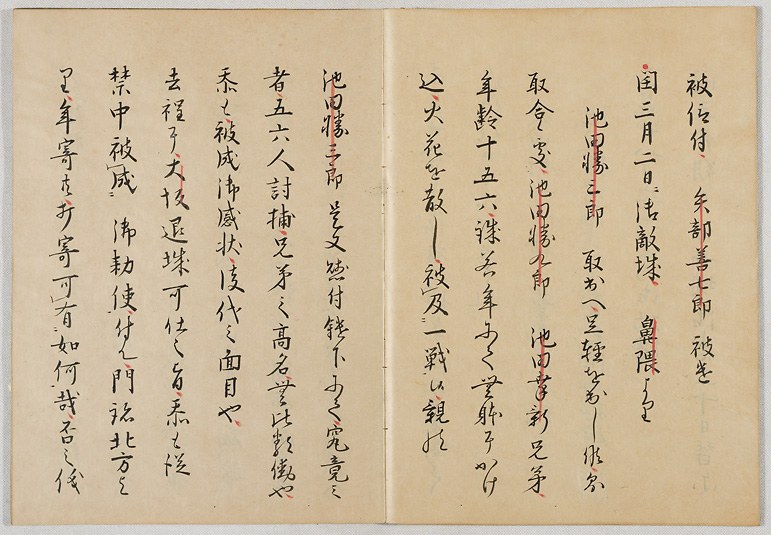 被仰付 矢部善七郎 被遣
閏三月二日ニ御敵城 鼻隈より
池田勝三郎 取出へ足軽を出し候
取合之処池田勝九郎 池田幸新兄弟
年齢十五六誠若年にて無躰ニかけ
込火花を散し被及一戦候親候
池田勝三郎 是又懸付鑓下にて究竟之
者五六人討捕兄弟之高名無比類働也
忝も被成御感状後代之面目也
去程ニ大坂退城可仕之旨忝も従
禁中被成 御勅使 門跡北方
年寄共打寄可有如何哉否之儀